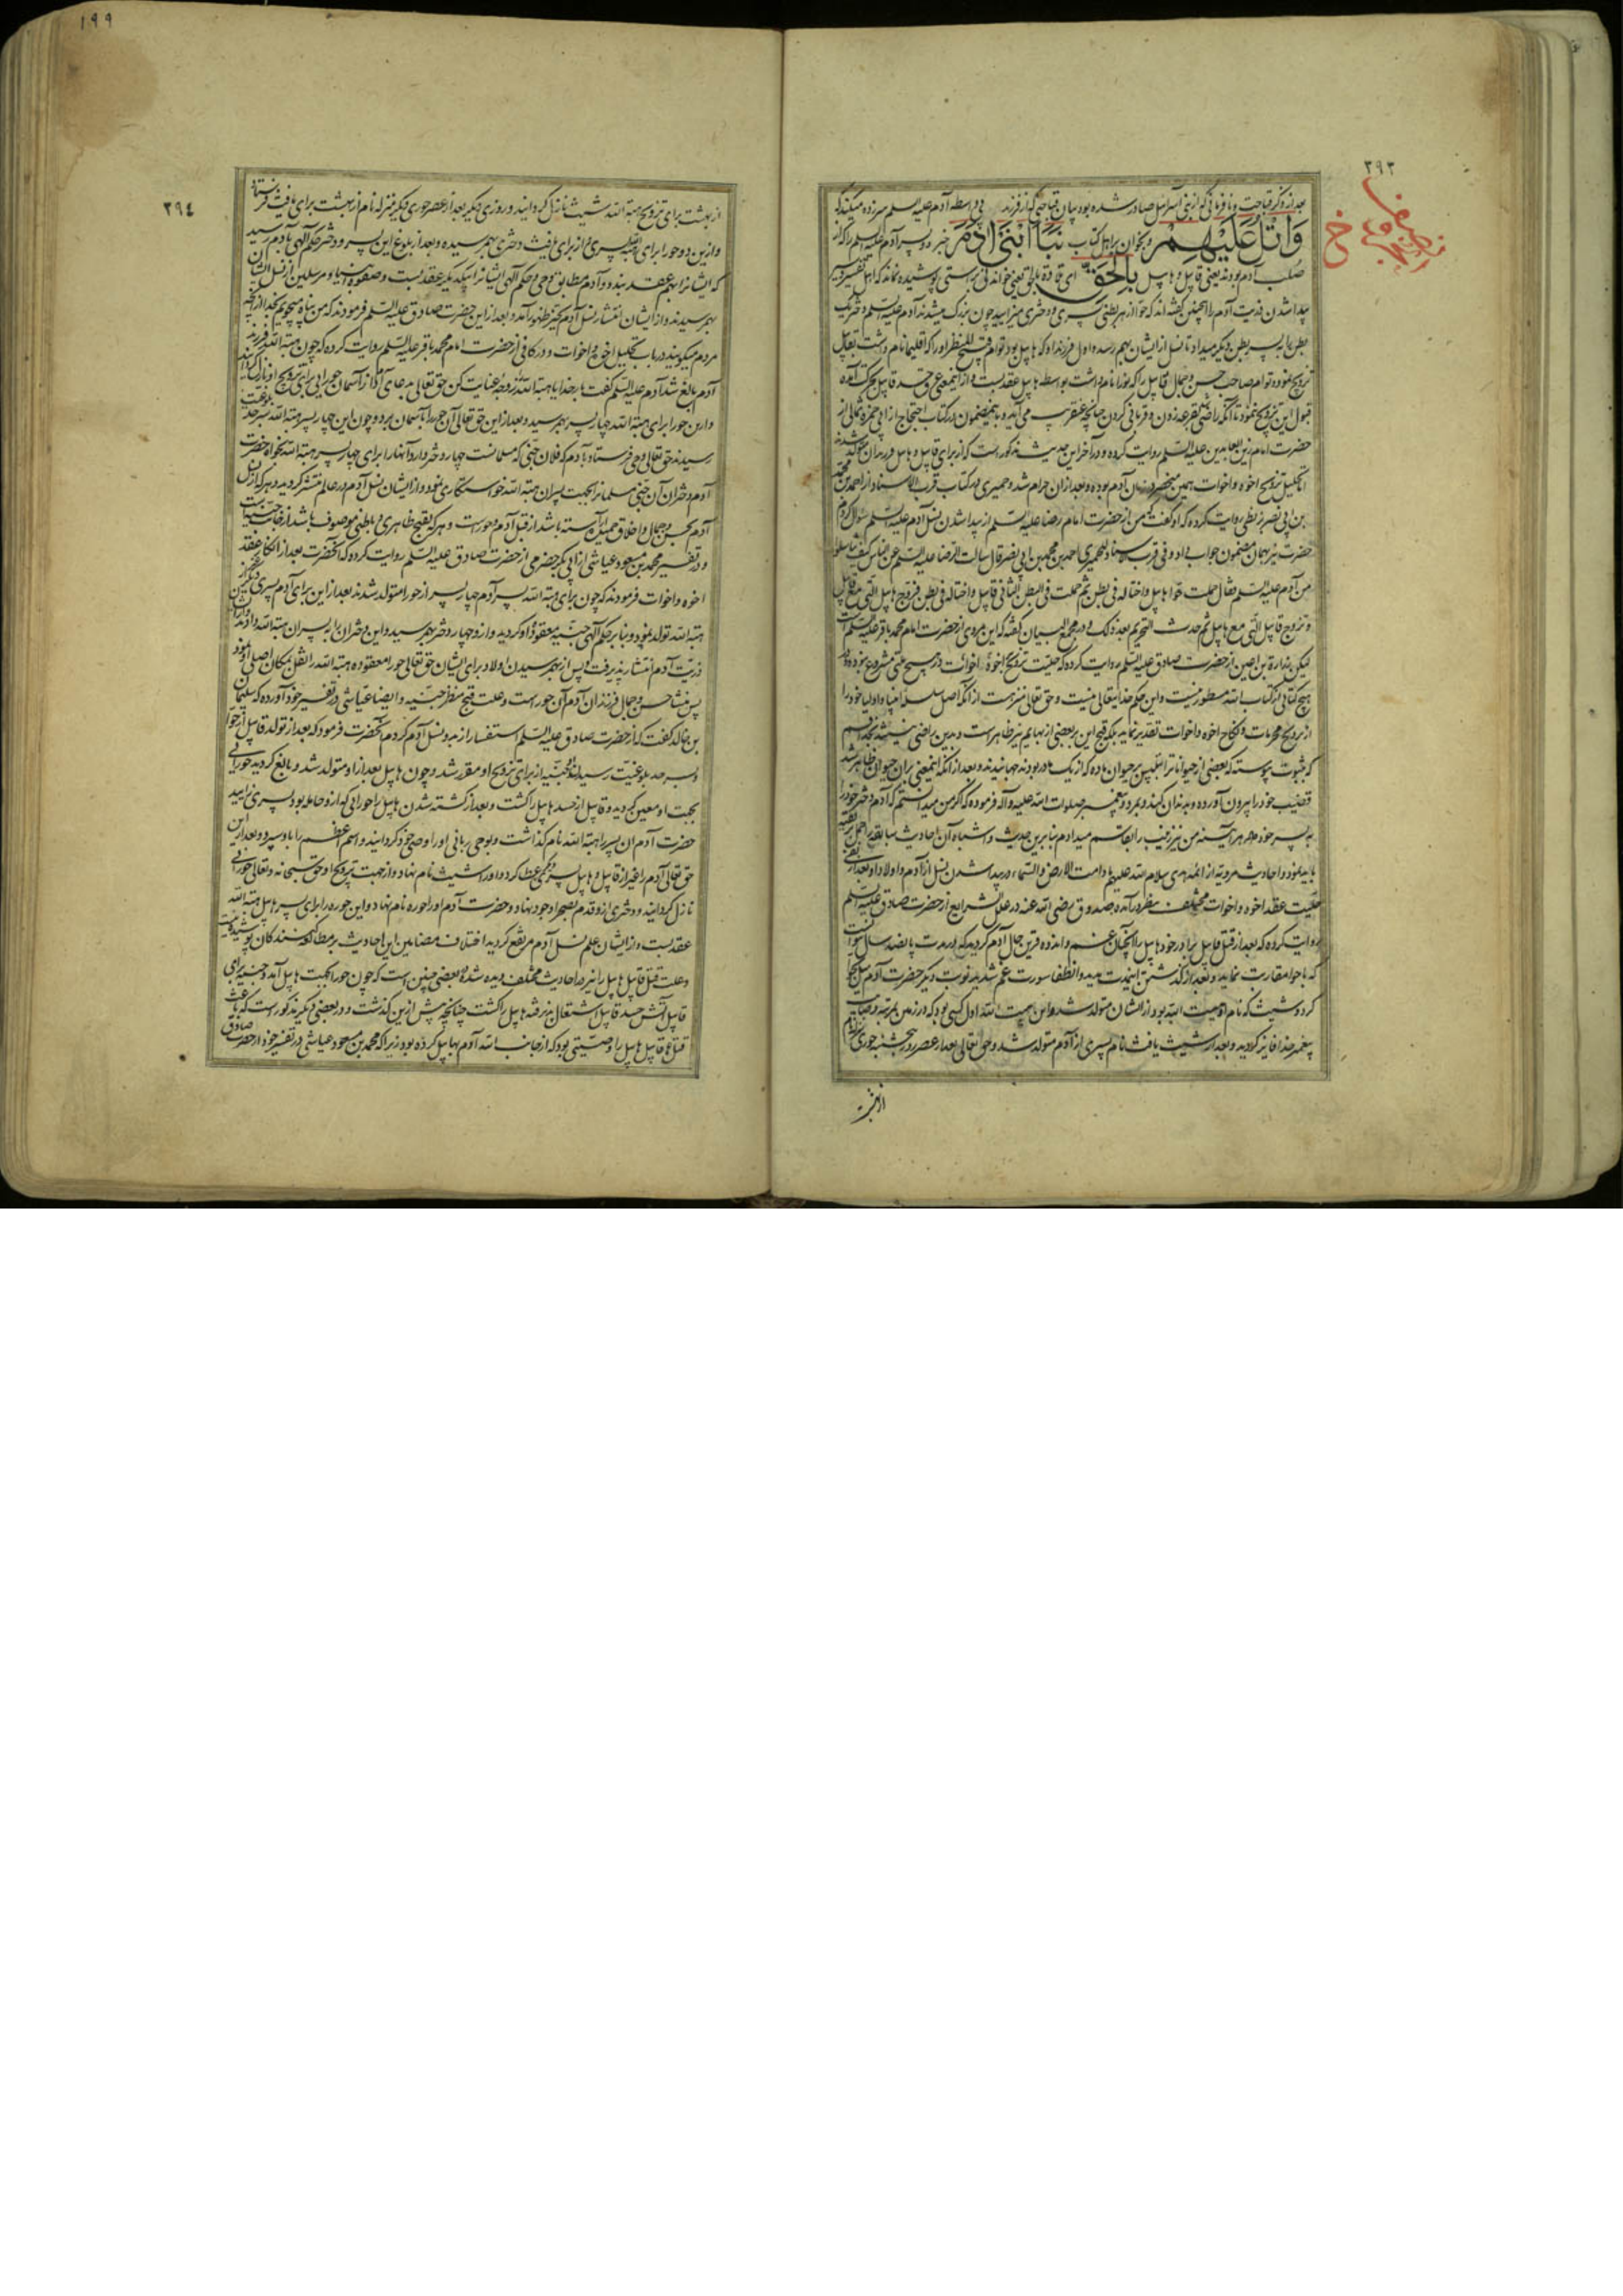 ٣٩٣
بعد از ذکر قباحت و نافرمانی که از بنی اسرائیل صادر شده بود بیان قباحتی که از فرزند بی واسطه آدم علیه السلم سر زده میکند که
وَاتْلُ عَلَيْهِمْ و بخوان بر اهل کتاب نَبَأَ ابْنَیْ آدَمَ خبر دو پسر آدم علیه السلم را که از
صلب آدم بودند یعنی قابیل و هابیل بِالْحَقِّ ای تلاوة بالحق یعنی خواندنی براستی پوشیده نماند که اهل تفسیر در
پیدا شدن ذریت آدم را همچنین گفته اند که حوا از هر بطنی پسری و دختری میزایید چون بزرگ میشدند آدم علیه السلم دختر یک
بطن را به پسر بطن دیگر میداد تا نسل از ایشان بهم رسد و اول فرزند او که هابیل بود توام قبیح المنظر او را که اقلیما نام داشت بقابیل
تزویج نمود و توام صاحب حسن و جمال قابیل را که بوزا نام داشت بواسطه هابیل عقد بست و از اینمعنی عرق حسد قابیل بحرکت آمده
قبول این تزویج ننمود تا آنکه راضی بقرعه زدن و قربانی کردن چنانچه عنقریب می آید و باینمضمون در کتاب احتجاج از ابی حمزه ثمالی از
حضرت امام زین العابدین علیه السلم روایت کرده و در آخر این حدیث مذکور است که از برای قابیل و هابیل
تحلیل تزویج اخوه و اخوات همین منحصر در زمان آدم بوده و بعد از آن حرام شد و حمیری در کتاب قرب الاسناد از احمد بن محمد
بن ابی نصر بزنطی روایت کرده که او گفت که من از حضرت امام رضا علیه السلم از پیدا شدن نسل آدم علیه السلم سؤال کردم
حضرت نیز بهمان مضمون جواب داد و فی قرب اسناد الحمیری احمد بن محمد بن ابی نصر قال سالت الرضا علیه السلم عن الناس کیف تناسلوا
من آدم علیه السلم فقال حملت حوا هابیل و اختا له فی بطن ثم حملت فی البطن الثانی قابیل و اختا له فی بطن فزوج هابیل التی مع قابیل
و تزوج قابیل التی مع هابیل ثم حدث التحریم بعد ذلک و در مجمع البیان گفته که این مروی از حضرت امام محمد باقر علیه السلم است
لیکن زرارة بن اعین از حضرت صادق علیه السلم روایت کرده که حلیت تزویج اخوه با اخوات در هیچ ملتی مشروع نبوده و در
هیچ کتابی از کتاب الله مسطور نیست و این حکم خدایتعالی نیست و حق تعالی منزه است از آنکه اصل سلسله انبیا و اولیا خود را
از تزویج محرمات و نکاح اخوه و اخوات تقدیر نماید بلکه قبح این بر بعضی از بهایم نیز ظاهر است و بدین راضی نمیشوند
که بثبوت پیوسته که بعضی از حیوانات
قضیب خود را بیرون آورده و بدندان کند و بمرد و پیغمبر صلوات الله علیه و آله فرموده که اگر من میدانستم که آدم دختر خود را
به پسر خود داد هر آینه من نیز زینب را بقاسم میدادم بنابرین حدیث و اشباه آن احادیث سابقه را حمل بر تقیه
باید نمود و احادیث مرویه از ائمه هدی سلام الله علیهم مادامت الارض و السماء در پیدا شدن نسل از آدم و اولاد او بعد از نفی
حلیت عقد اخوه و اخوات مختلف بنظر در آمده صدوق رضی الله عنه در علل الشرایع از حضرت صادق علیه السلم
روایت کرده که بعد از قتل قابیل برادر خود هابیل را آنچنان غم و اندوه قرین حال آدم گردید که در مدت پانصد سال نتوانست
که با حوا مقاربت نماید و بعد از گذشتن اینمدت مدید و انطفا سورت غم شدید نوبت دیگر حضرت آدم میل بحوا
کرد و شیث که نام او هبت الله بود از ایشان متولد شد و این هبت الله اول کسی بود که در زمین بمرتبه وصایت
پیغمبر خدا فایز گردید و بعد از شیث یافث نام پسری از آدم متولد شد و حق تعالی بعد از عصر روز پنجشنبه حوری
از بهشت
١٩٩
٣٩٤
از بهشت برای تزویج هبة الله شیث نازل گردانید و روزی دیگر بعد از عصر حوری دیگر منزله نام از بهشت برای یافث فرستاد
و ازین دو حور از برای شیث پسری و از برای یافث دختری بهم رسید و بعد از بلوغ این پسر و دختر حکم آلهی بآدم رسید
که ایشانرا بهم عقد بندد و آدم مطابق وحی و حکم آلهی ایشانرا بیکدیگر عقد بست و صفوه انبیا و مرسلین از نسل ایشان
بهم رسیدند و از ایشان انتشار نسل آدم بحیز ظهور آمد و بعد از این حضرت صادق علیه السلم فرمودند که من پناه میجویم بخدا از آنچه
مردم میگویند در باب تحلیل اخوه و اخوات و در کافی از حضرت امام محمد باقر علیه السلم روایت کرده که چون هبة الله فرزند
آدم بالغ شد آدم علیه السلم گفت بار خدایا هبة الله را زوجه عنایت کن حق تعالی بدعای آدم از آسمان حورایی برای تزویج او نازل گردانید
و ازین حورا برای هبة الله چهار پسر بهم رسید و بعد از این حق تعالی آن حورا را بآسمان برد و چون این چهار پسر هبة الله بسر حد بلوغیت
رسیدند حق تعالی وحی فرستاد بآدم که فلان جنی که مسلمانست چهار دختر دارد آنها را برای چهار پسر هبة الله بخواه حضرت
آدم دختران آن جنی مسلمانرا بجهت پسران هبة الله خواستگاری نمود و از ایشان نسل آدم در عالم منتشر گردید و هر که از نسل
آدم بحسن و جمال و اخلاق جمیله آراسته باشد از قبل آدم و حور است و هر که بقبح ظاهری و باطنی موصوف باشد از جانب جنیه است
و در تفسیر محمد بن مسعود عیاشی از ابی بکر حضرمی از حضرت صادق علیه السلم روایت کرده که آنحضرت بعد از انکار عقد
اخوه و اخوات فرمودند که چون برای هبة الله پسر آدم چهار پسر از حورا متولد شدند بعد از این برای آدم پسری دیگر
هبة الله تولد نمود و بنا بر حکم آلهی جنیه معقوده او گردید و ازو چهار دختر بهم رسید و این دختران را به پسران هبة الله دادند
ذریت آدم انتشار پذیرفت و پس از بهم رسیدن اولاد برای ایشان حق تعالی حورا معقوده هبة الله را نقل بمکان اصلی او نمود
پس منشا حسن و جمال فرزندان آدم آن حور است و علت قبح منظر جنیه و ایضا عیاشی در تفسیر خود آورده که سلیمان
بن خالد گفت که از حضرت صادق علیه السلم استفسار از بدو نسل آدم کردم آنحضرت فرمود که بعد از تولد قابیل از حوا
و بسر حد بلوغیت رسیدن او جنیه از برای تزویج او مقرر شد و چون هابیل بعد از او متولد شد و بالغ گردید حورایی
بجهت او معین گردید و قابیل از حسد هابیل را کشت و بعد از کشته شدن هابیل زن حورایی که ازو حامله بود پسری زایید
حضرت آدم آن پسر را هبة الله نام گذاشت و بوحی ربانی او را وصی خود گردانید و اسم اعظم را باو سپرد و بعد ازین
حق تعالی آدم را غیر از قابیل و هابیل پسر دیگری عطا کرد و او را شیث نام نهاد و از جهت تزویج او حق سبحانه و تعالی حورایی
نازل گردانید و دختری ازو قدم بصحرا وجود نهاد و حضرت آدم او را حوره نام نهاد و این حوره را برای پسر هابیل هبة الله
عقد بست و از ایشان علم نسل آدم مرتفع گردید اختلاف مضامین این احادیث بر مطالعه کنندگان پوشیده نیست
و علت قتل قابیل هابیل را نیز در احادیث مختلف دیده شده بعضی چنین است که چون حورا بجهت هابیل آمد و جنیه برای
قابیل آتش حسد قابیل اشتعال پذیرفته هابیل را کشت چنانچه پیش ازین گذشت و در بعضی دیگر مذکور است که باعث
قتل قابیل هابیل را وصیتی بود که از جانب الله آدم بهابیل کرده بود زیرا که محمد بن مسعود عیاشی در تفسیر خود از حضرت صادق